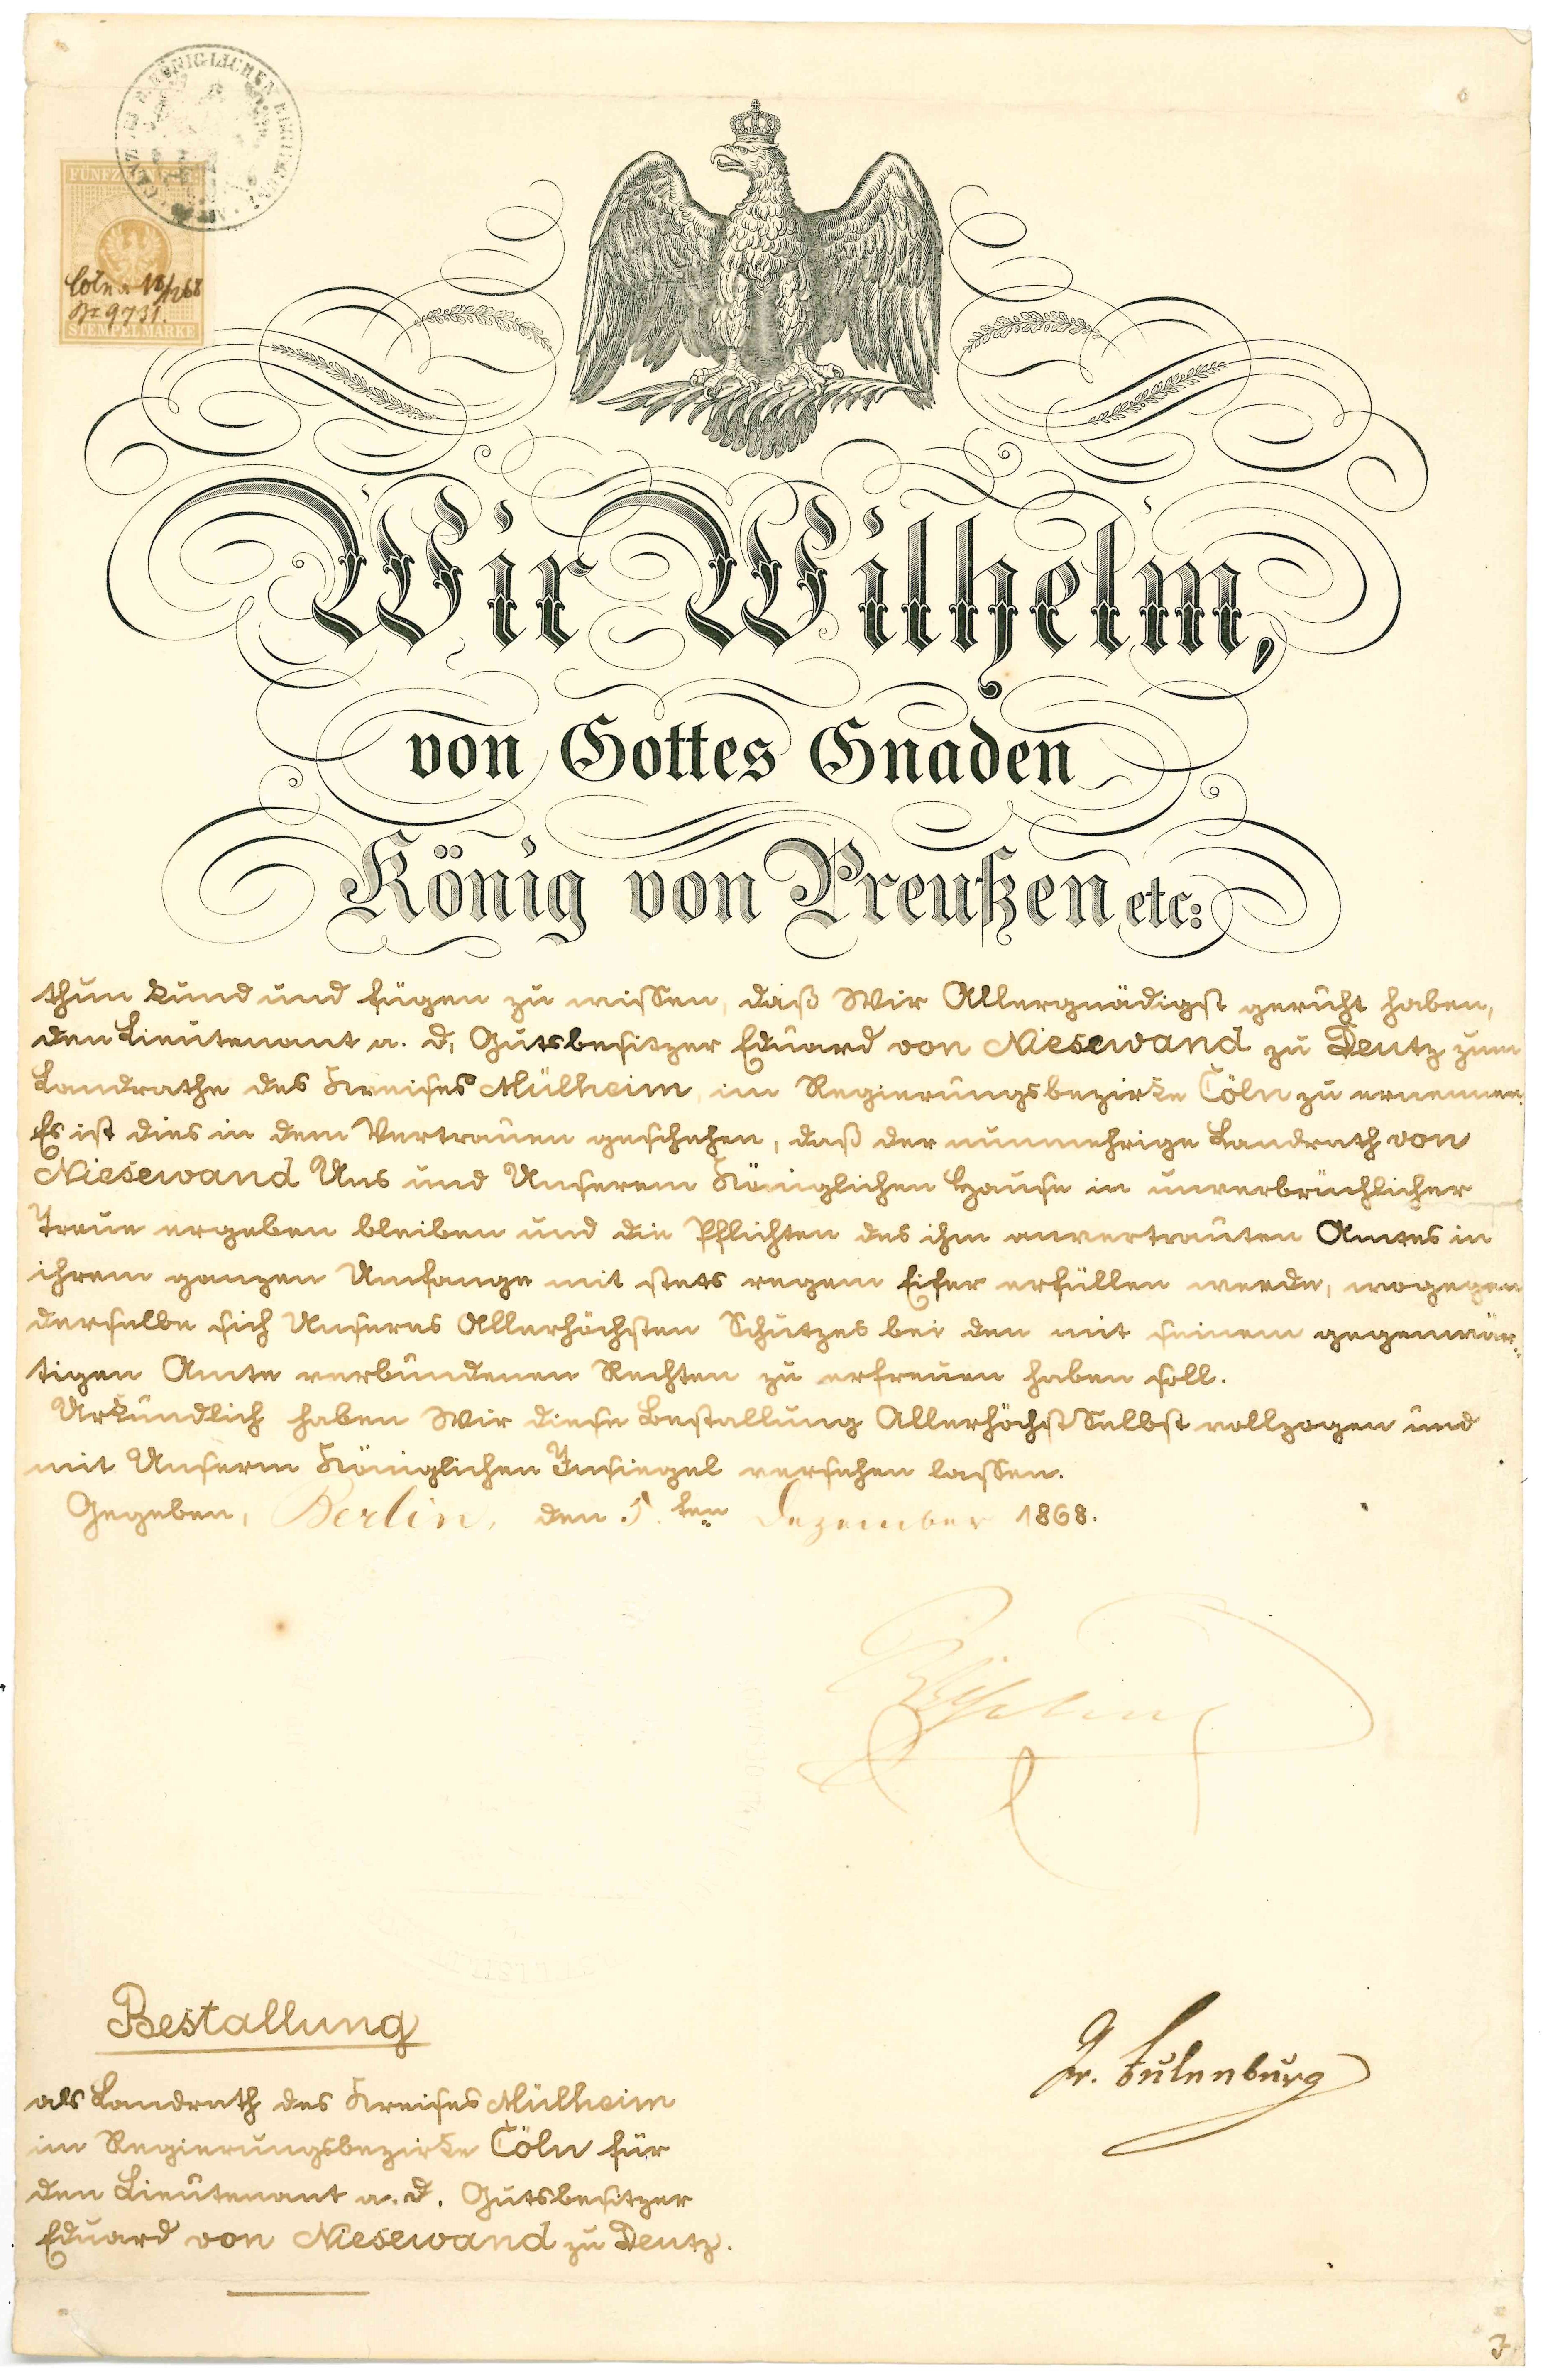 KÖNIGLICHEN
FÜNFZEHN
Cöln 18/12 68
No 9731.
STEMPELMARKE
Wir Wilhelm,
von Gottes Gnaden
König von Preußen etc:
thun kund und fügen zu wissen, daß Wir Allergnädigst geruht haben,
den Lieutenant a. D, Gutsbesitzer Eduard von Niesewand zu Deutz zum
Landrathe des Kreises Mülheim im Regierungsbezirke Cöln zu ernennen.
Es ist dies in dem Vertrauen geschehen, daß der nunmehrige Landrath von
Niesewand Uns und Unserem Königlichen Hause in unverbrüchlicher
Treue ergeben bleiben und die Pflichten des ihm anvertrauten Amtes in
ihrem ganzen Umfange mit stets regem Eifer erfüllen werde, wogegen
derselbe sich Unseres Allerhöchsten Schutzes bei den mit seinem gegenwär-
tigen Amte verbundenen Rechten zu erfreuen haben soll.
Urkundlich haben Wir diese Bestallung Allerhöchst Selbst vollzogen und
mit Unserm Königlichen Insiegel versehen lassen.
Gegeben, Berlin, den 5. ten Dezember 1868.
Wilhelm
Bestallung
als Landrath des Kreises Mülheim
im Regierungsbezirke Cöln für
den Lieutenant a. D. Gutsbesitzer
Eduard von Niesewand zu Deutz.
Gr. Eulenburg